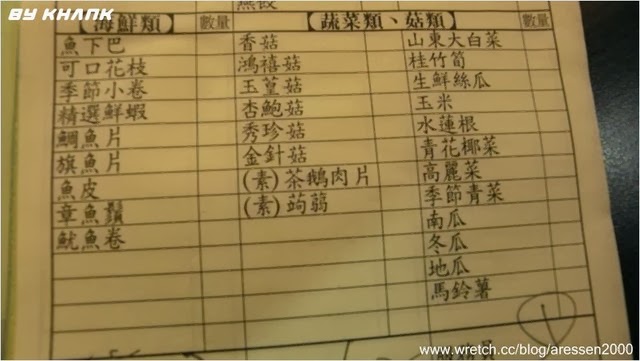 BY KHANK
【海鮮類】 數量 【蔬菜類、菇類】 數量
魚下巴 香菇 山東大白菜
可口花枝 鴻禧菇 桂竹筍
季節小卷 玉蕈菇 生鮮絲瓜
精選鮮蝦 杏鮑菇 玉米
鯛魚片 秀珍菇 水蓮根
旗魚片 金針菇 青花椰菜
魚皮 (素)茶鵝肉片 高麗菜
章魚鬚 (素)蒟蒻 季節青菜
魷魚卷 南瓜
冬瓜
地瓜
馬鈴薯
www.wretch.cc/blog/aressen2000